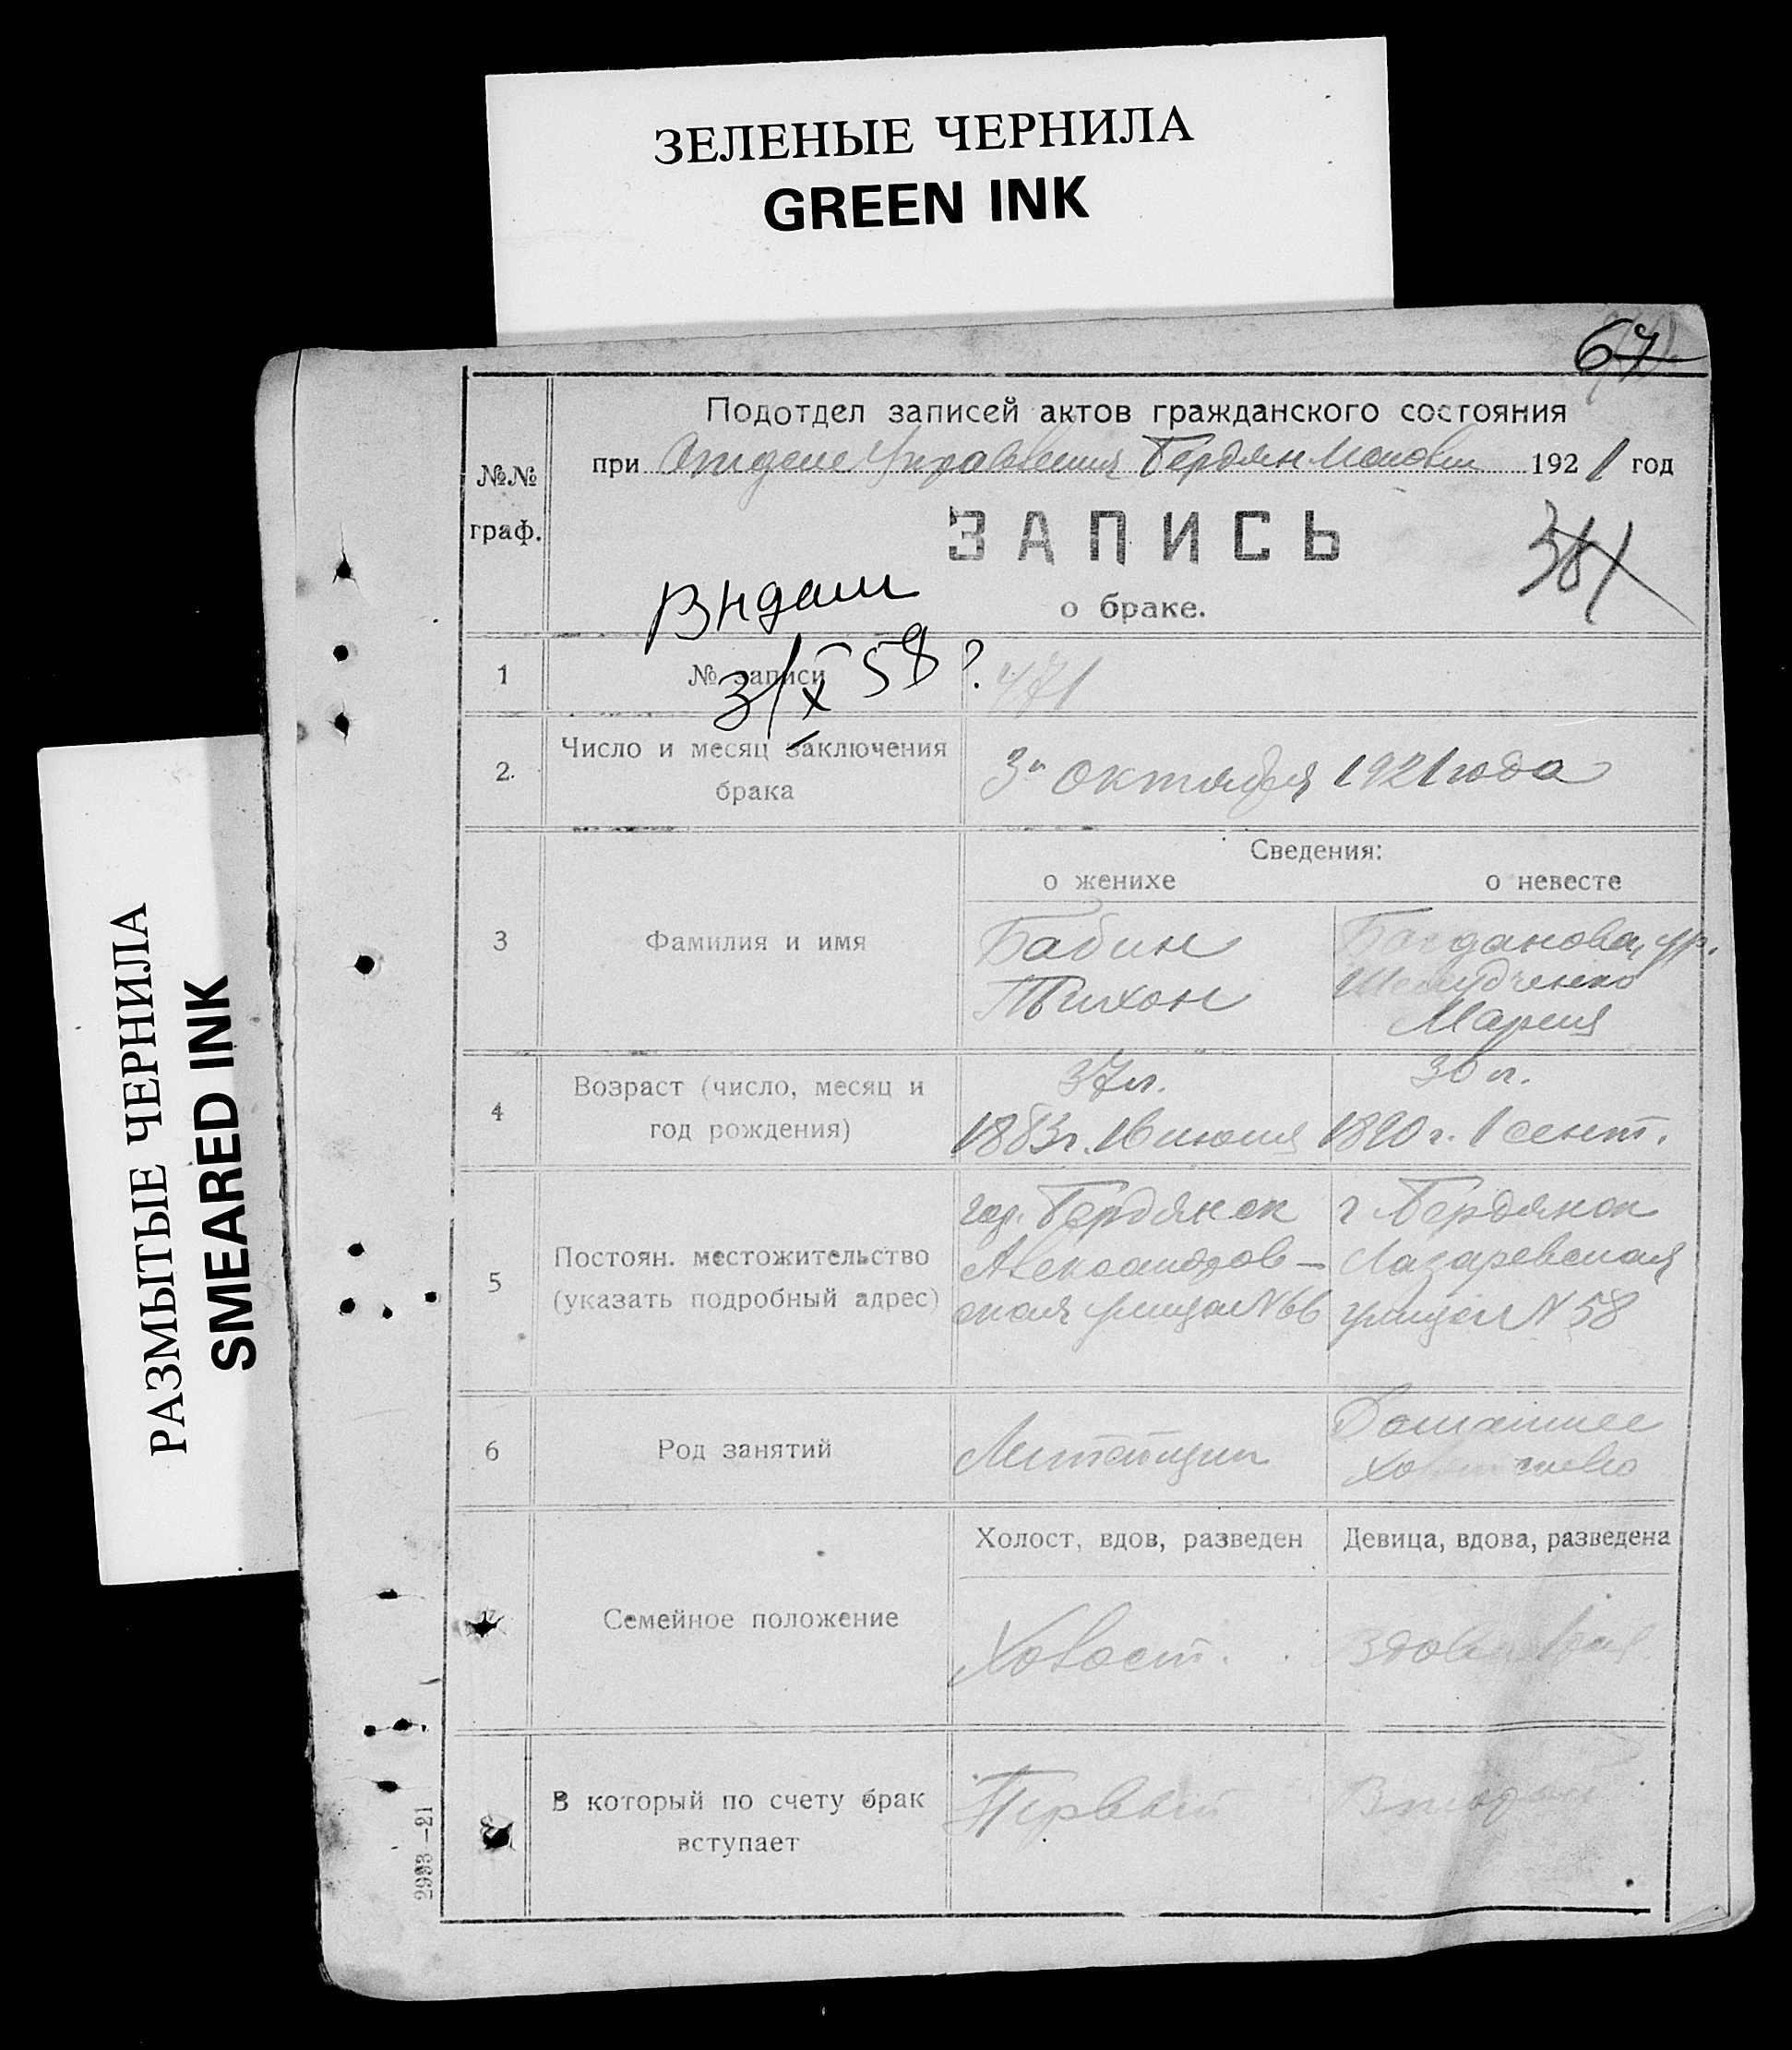 ЗЕЛЕНЫЕ ЧЕРНИЛА
GREEN INK
РАЗМЫТЫЕ ЧЕРНИЛА
SMEARED INK
67
Подотдел записей актов гражданского состояния
при Отделе Управления Бердян 1921 год
№№
граф.
ЗАПИСЬ
381
о браке.
3/X 58
1 № записи 471
2. Число и месяц заключения
брака
3го октября 1921 года
Сведения:
о женихе о невесте
3 Фамилия и имя
Бабин
Тихон
Богданова, ур.
Мария
4 Возраст (число, месяц и
год рождения)
37 л.
1883 г. 16 июня
30 л.
1890 г. 1 сент.
5 Постоян. местожительство
(указать подробный адрес)
гор. Бердянск
Александров-
ская улица N 66
г Бердянск
Лазаревская
улица N 58
6 Род занятий
Домашнее
Холост, вдов, разведен Девица, вдова, разведена
7 Семейное положение
Холост.
8 В который по счету брак
вступает
Первый
Второй
2993—21